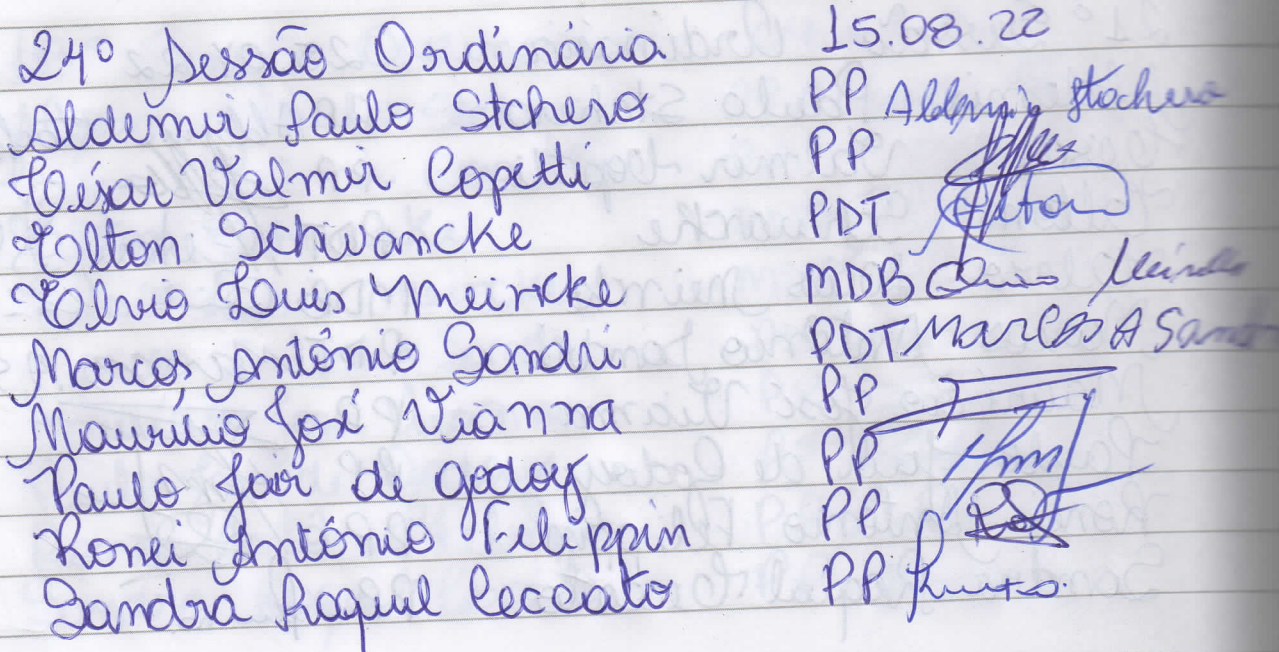 24º Sessão Ordinária 15.08.22
Aldemir Paulo Stchero PP Aldemir Stochero
César Valmir Copetti PP
Elton Schwancke PDT Elton
Elvio Louis Meincke MDB Meincke
Marcos Antônio Sandri PDT Marcos A Sandri
Maurílio José Vianna PP
Paulo Jair de Godoy PP
Ronei Antônio Filippin PP
Sandra Raquel Ceccato PP